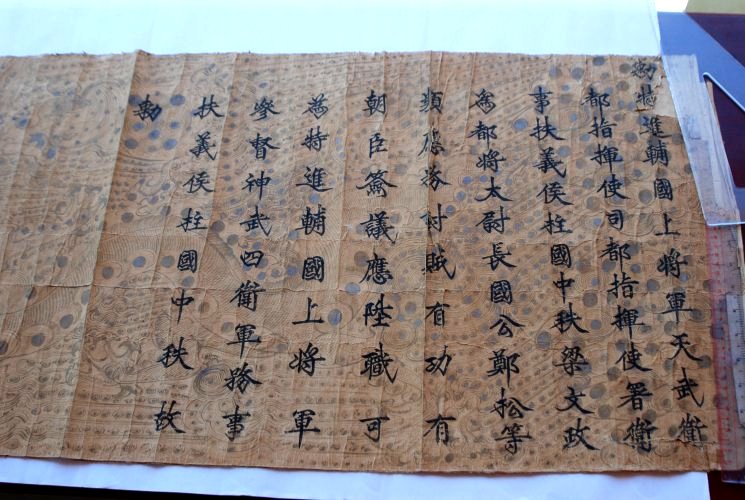 敕特進輔國上將軍天武衛
都指揮使司都指揮使署衛
事扶義侯柱國中秩梁文政
爲都將太尉長國公鄭松等
類應務討賊有功有
朝臣僉議應陞職可
爲特進輔國上將軍
參督神武四衛軍務事
扶義侯柱國中秩故
敕